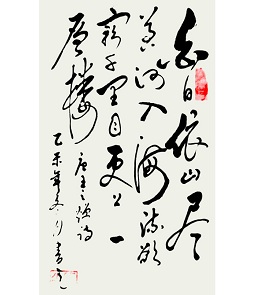 白日依山尽
黄河入海流欲
穷千里目更上一
层楼
唐王之涣诗
乙未年冬月